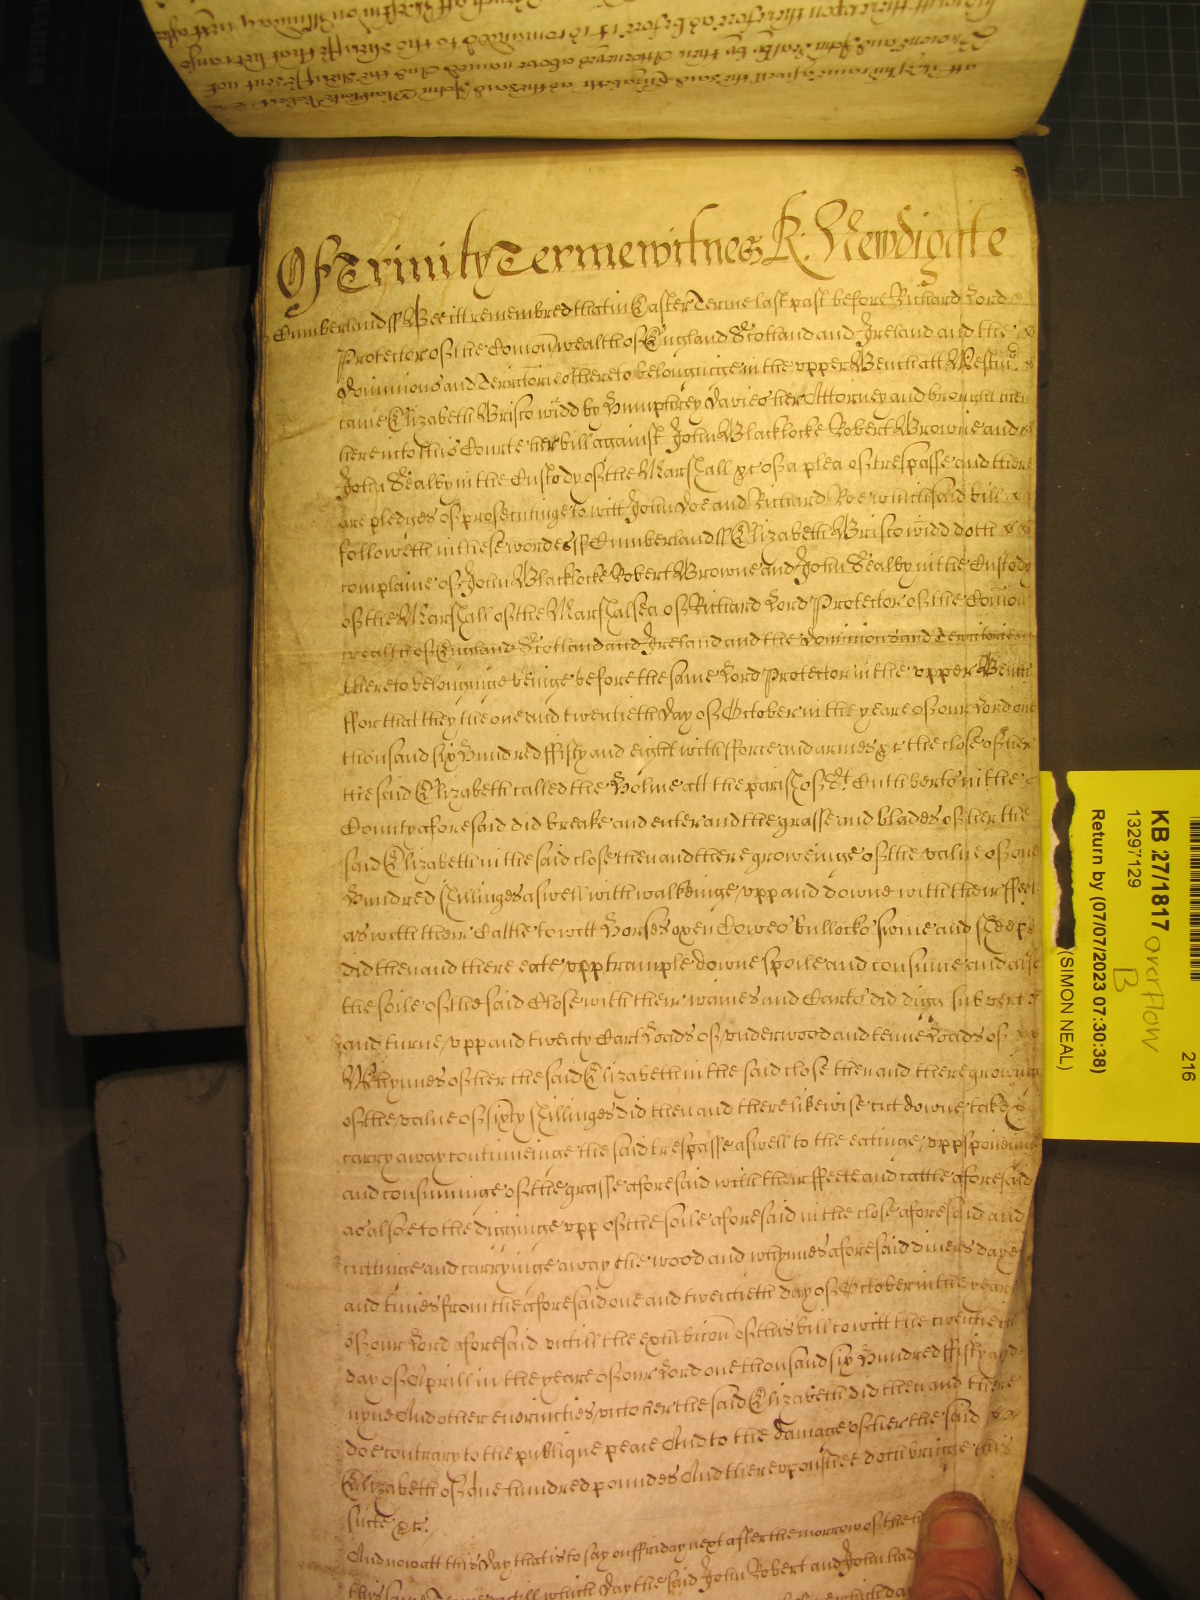 Of Trinity Terme witnes R: Newdigate
Cumberland ss Bee itt remembred that in Easter Terme last past before Richard Lord
Protector of the Comonwealth of England Scotland and Ireland and the
dominions and Territories thereto belonginge in the upper Bench att Westmr
came Elizabeth Brisco widd by Humphrey Davies her Attorney and brought then
here into this Courte her bill against John Blacklocke Robert Browne and
John Sealby in the Custody of the Marshall &c of a plea of trespasse and there
are pledges of prosecutinge to witt John Doe and Richard Roe which said bill
followeth in these wordes ss Cumberland ss Elizabeth Brisco widd doth
complaine of John Blacklocke Robert Browne and John Sealby in the Custody
of the Marshall of the Marshalsea of Richard Lord Protector of the Comon
wealth of England Scotland and Ireland and the Dominions and Territories
thereto belonginge beinge before the same Lord Protector in the upper Bench
ffor that they the one and twentieth day of October in the yeare of our Lord one
thousand six hundred ffifty and eight with fforce and armes &c the close of her
the said Elizabeth called the Holme att the parish of St Cuthberts in the
County aforesaid did breake and enter and the grasse and blades of her the
said Elizabeth in the said close then and there groweinge of the value of one
hundred shillinges aswell with walkeinge upp and downe with their ffeet
as with their Cattle to witt horses oxen Cowes bullocks swine and sheepe
did then and there eate upp trample downe spoile and consume and also
the soile of the said Close with their waines and Carts did digg subvert
and turne upp and twenty Cart Loads of underwood and tenne Loads of
Whynnes of her the said Elizabeth in the said close then and there groweinge
of the value of sixty shillinges did then and there likewise cut downe take &
carry away continueinge the said trespasse aswell to the eatinge upp spoileinge
and consuminge of the grasse aforesaid with their ffeete and cattle aforesaid
as alsoe to the digginge upp of the soile aforesaid in the close aforesaid and
cuttinge and carryinge away the wood and whynnes aforesaid divers dayes
and times from the aforesaid one and twentieth day of October in the yeare
of our Lord aforesaid untill the exhibicon of this bill to witt the twentieth
day of Aprill in the yeare of our Lord one thousand six hundred ffifty and
nyne And other enormities unto her the said Elizabeth did then and there
doe contrary to the publique peace And to the damage of her the said
Elizabeth of one hundred poundes And thereupon shee doth bringe this
suite &c.
And now att this day that is to say on ffriday next after the morrow of the
this same Terme untill which day the said John Robert and John had
KB 27/1817 overflow
13297129 B
Return by (07/07/2023 07:30:38)
(SIMON NEAL)
216